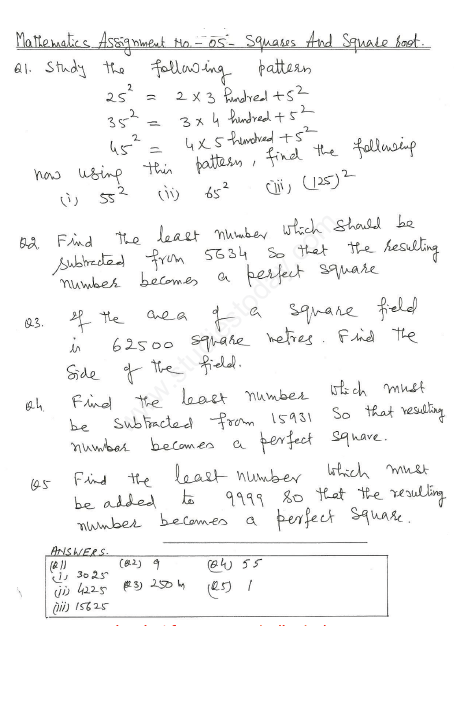 Mathematics Assignment No. - 05 - Squares And Square Root.
Q1. Study the following pattern
25² = 2 x 3 hundred + 5²
35² = 3 x 4 hundred + 5²
45² = 4 x 5 hundred + 5²
now using this pattern, find the following
(i) 55² (ii) 65² (iii) (125)²
Q2 Find the least number which should be
subtracted from 5634 so that the resulting
number becomes a perfect square
Q3. If the area of a square field
is 62500 square metres. Find the
side of the field.
Q4 Find the least number which must
be subtracted from 15931 so that resulting
number becomes a perfect square.
Q5 Find the least number which must
be added to 9999 so that the resulting
number becomes a perfect square.
ANSWERS.
(Q1) (Q2) 9 (Q4) 55
(i) 3025
(ii) 4225 (Q3) 250 m (Q5) 1
(iii) 15625
www.studiestoday.com